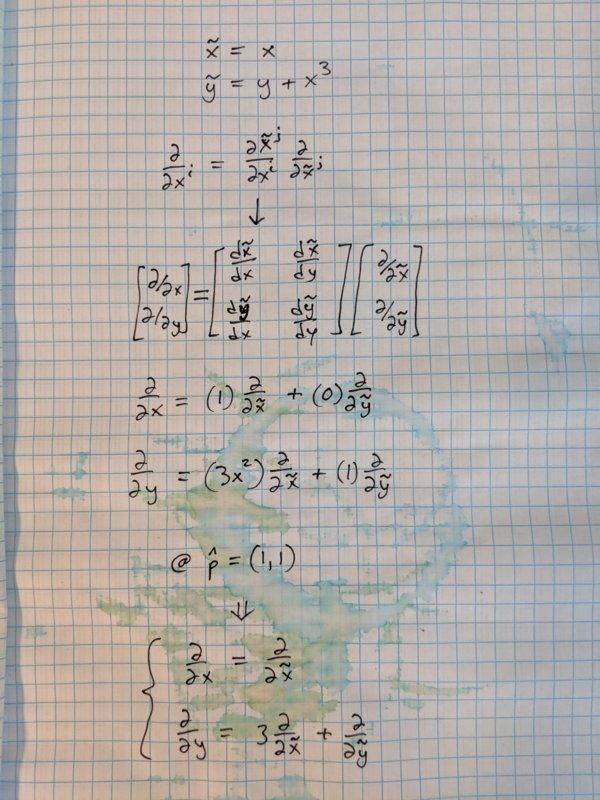 x̃ = x
ỹ = y + x³
∂/∂xⁱ = ∂x̃ʲ/∂xⁱ ∂/∂x̃ʲ
↓
[∂/∂x ∂/∂y] = [dx̃/dx dx̃/dy dỹ/dx dỹ/dy] [∂/∂x̃ ∂/∂ỹ]
∂/∂x = (1) ∂/∂x̃ + (0) ∂/∂ỹ
∂/∂y = (3x²) ∂/∂x̃ + (1) ∂/∂ỹ
@ p̂ = (1,1)
⇓
{ ∂/∂x = ∂/∂x̃
∂/∂y = 3 ∂/∂x̃ + ∂/∂ỹ